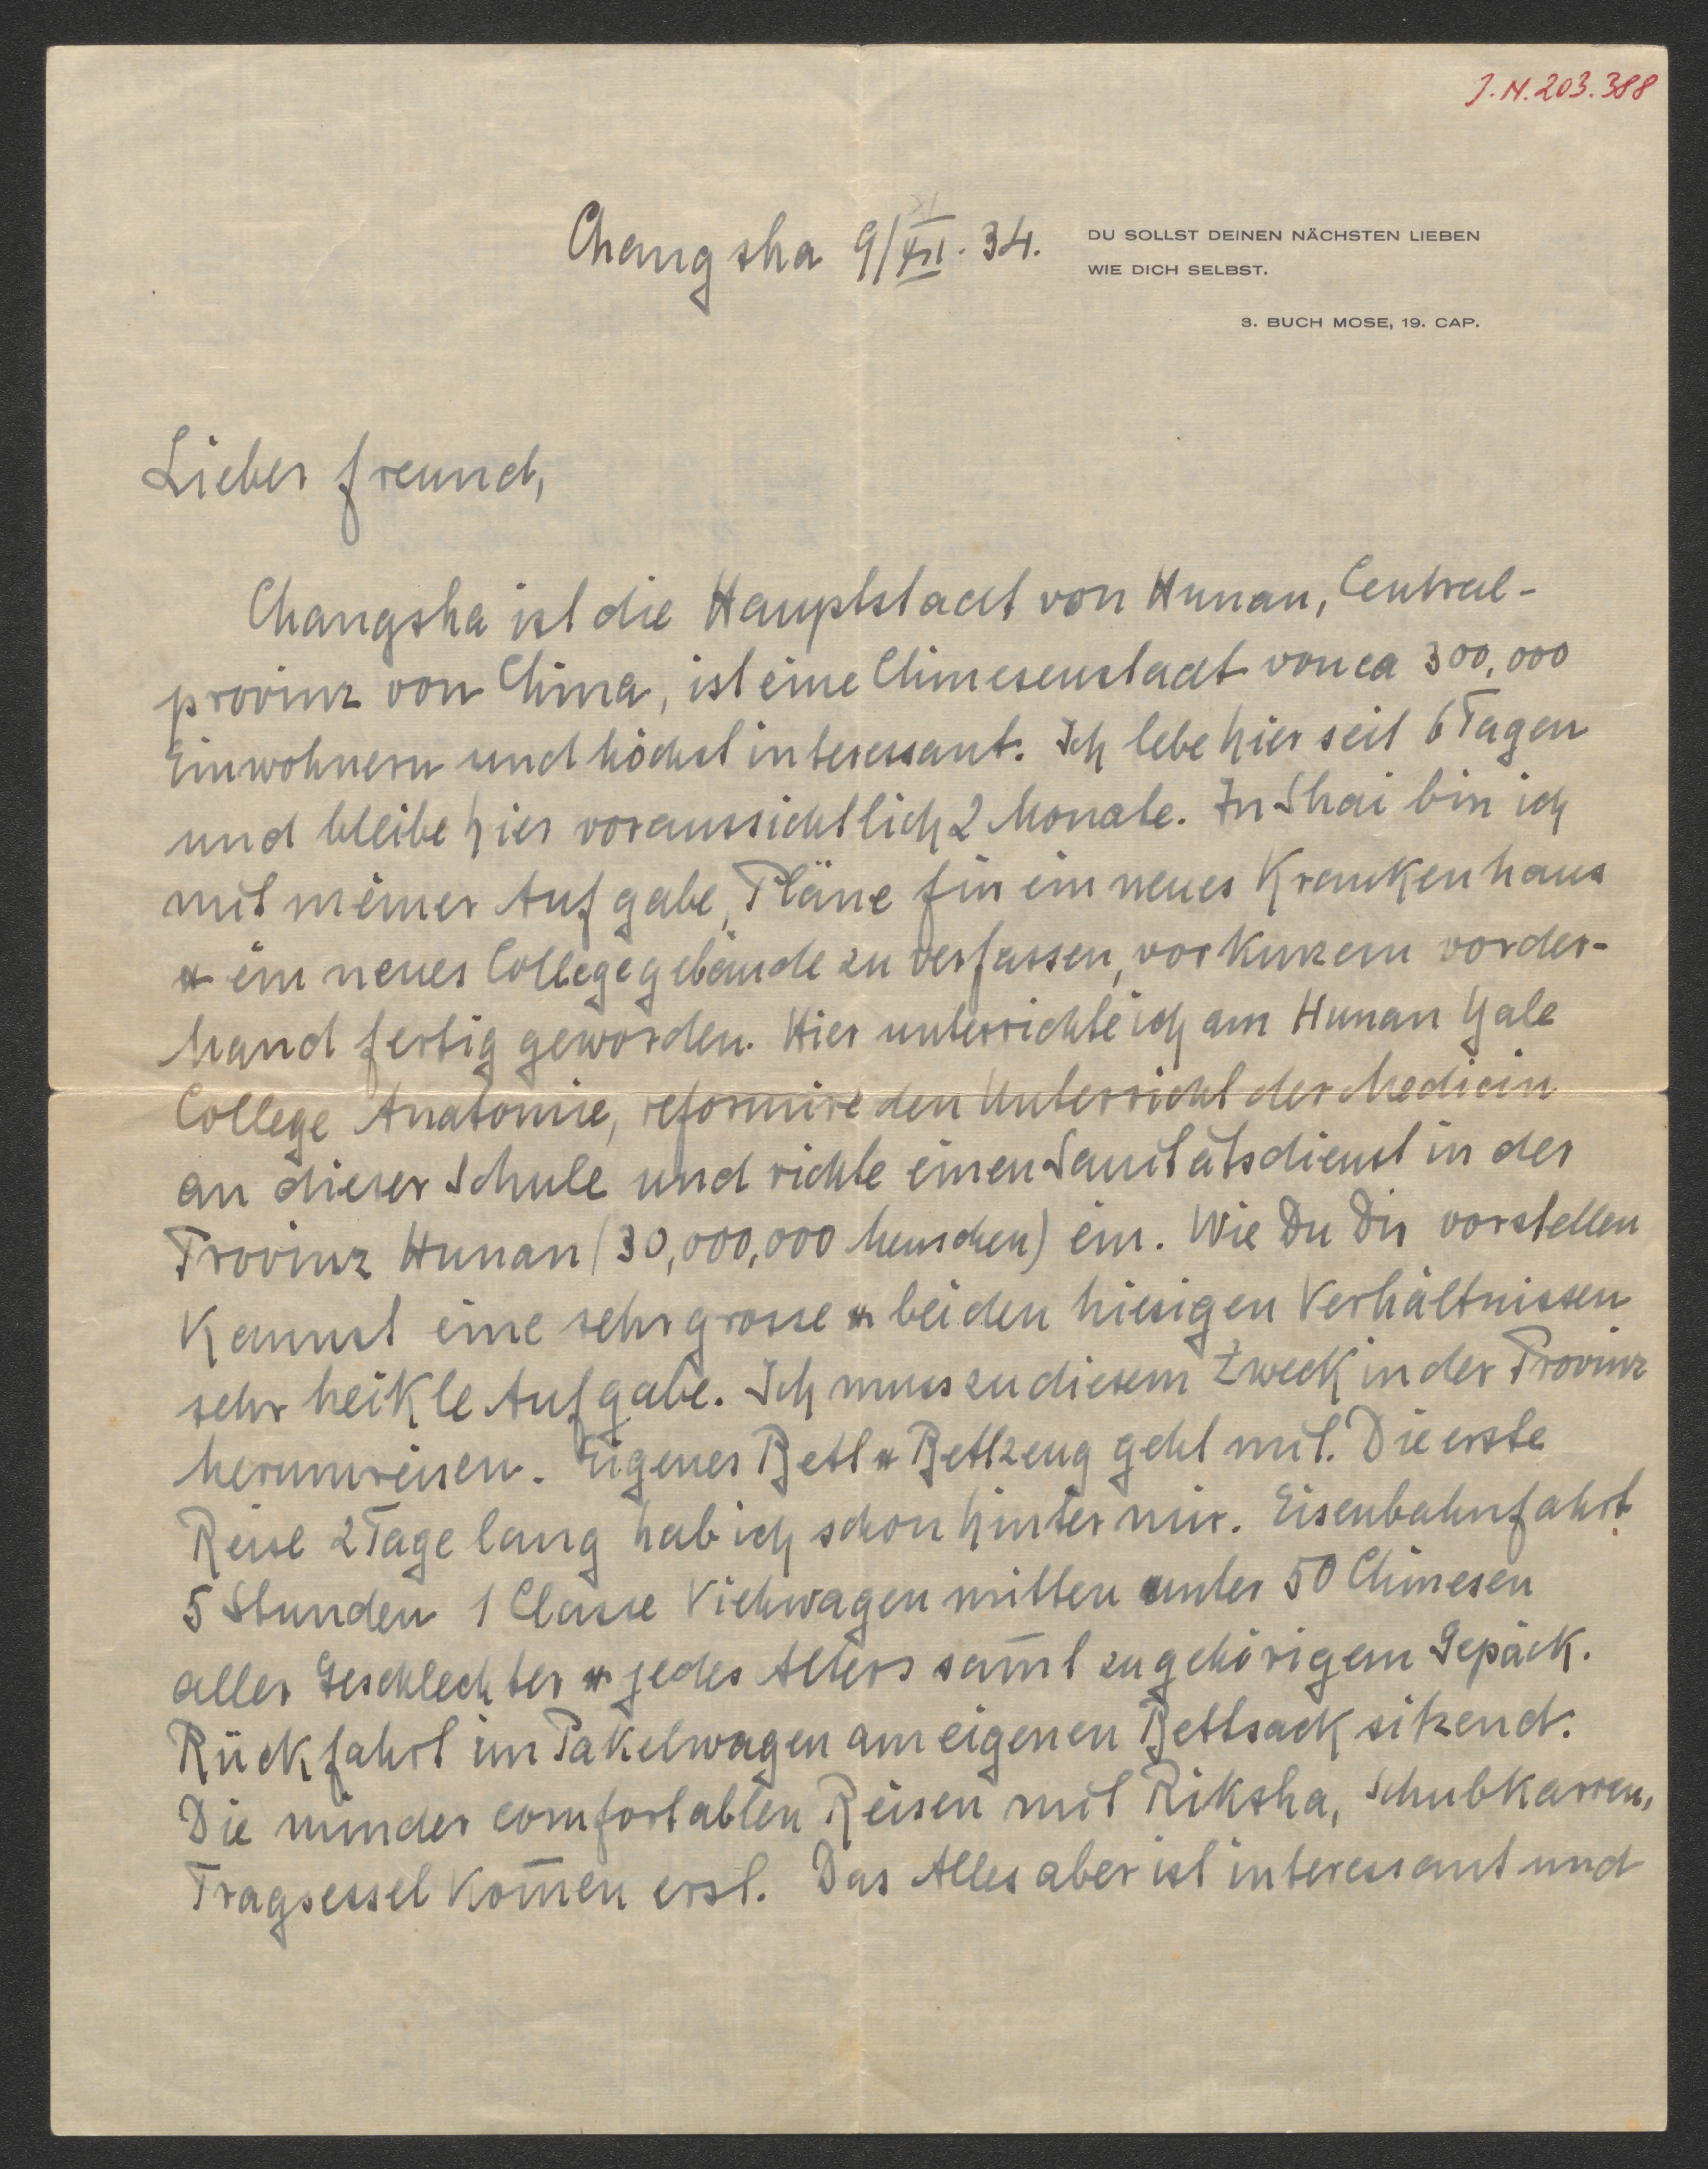 J.N. 203.388
Changsha 9/XII. 34.
DU SOLLST DEINEN NÄCHSTEN LIEBEN
WIE DICH SELBST.
3. BUCH MOSE, 19. CAP.
Lieber Freund,
Changsha ist die Hauptstadt von Hunan, Central-
provinz von China, ist eine Chinesenstadt von ca 300,000
Einwohnern und höchst interessant. Ich lebe hier seit 6 Tagen
und bleibe hier voraussichtlich 2 Monate. In Shai bin ich
mit meiner Aufgabe, Pläne für ein neues Krankenhaus
u ein neues Collegegebäude zu verfassen, vor Kurzem vorder-
hand fertig geworden. Hier unterrichte ich am Hunan Yale
College Anatomie, reformire den Unterricht der Medicin
an dieser Schule und richte einen Sanitätsdienst in der
Provinz Hunan (30,000,000 Menschen) ein. Wie Du Dir vorstellen
kannst eine sehr grosse u bei den hiesigen Verhältnissen
sehr heikle Aufgabe. Ich muss zu diesem Zweck in der Provinz
herumreisen. Eigenes Bett u Bettzeug geht mit. Die erste
Reise 2 Tage lang hab ich schon hinter mir. Eisenbahnfahrt
5 Stunden 1 Classe Viehwagen mitten unter 50 Chinesen
aller Geschlechter u jedes Alters sam̅t zugehörigem Gepäck.
Rückfahrt im Paketwagen am eigenen Bettsack sitzend.
Die minder comfortablen Reisen mit Riksha, Schubkarren,
Tragsessel kom̅en erst. Das Alles aber ist interessant und